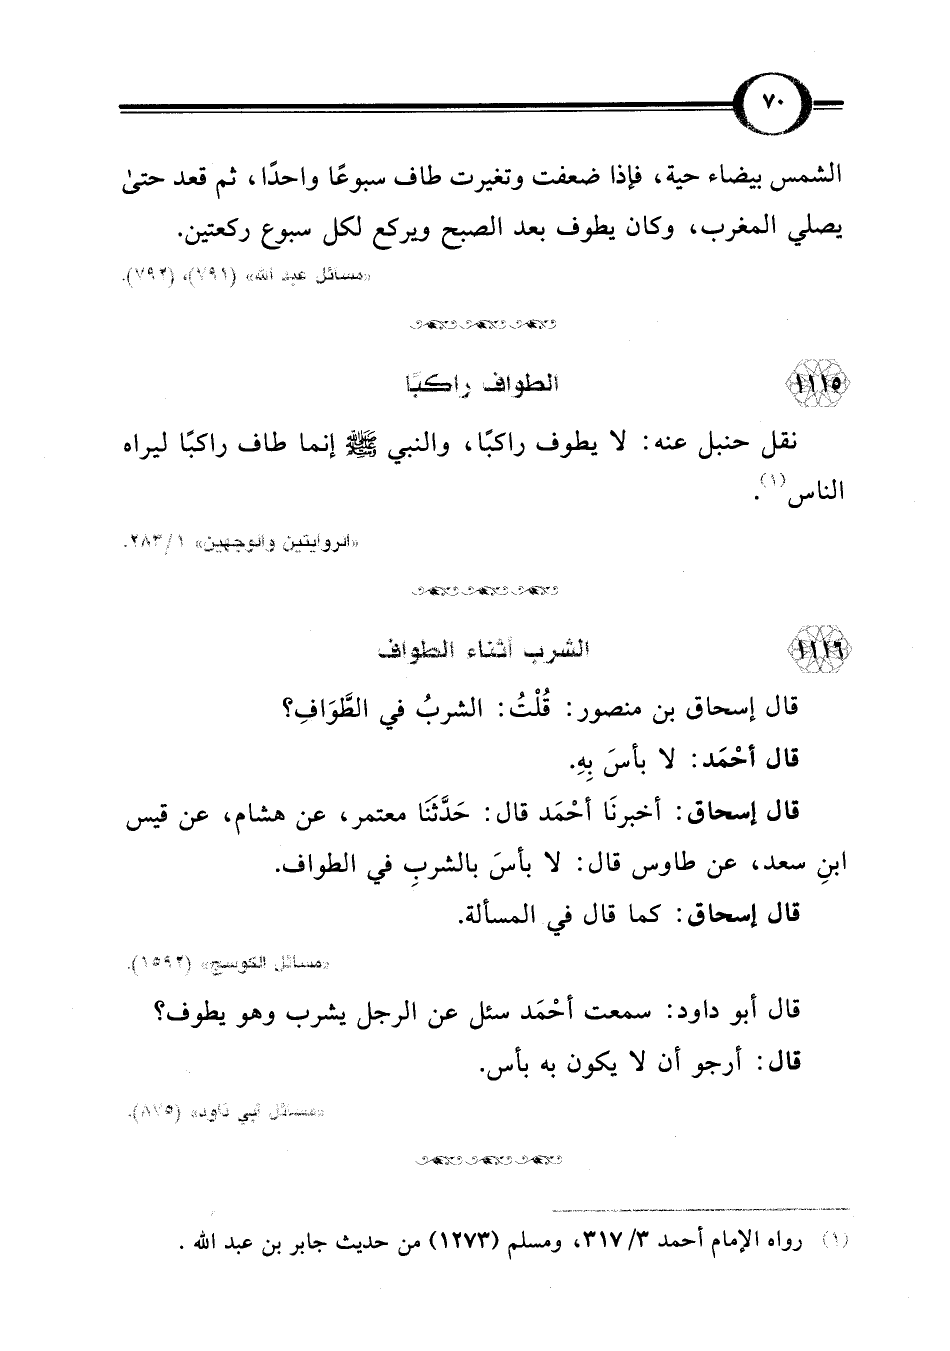 ٧٠
الشمس بيضاء حية، فإذا ضعفت وتغيرت طاف سبوعًا واحدًا، ثم قعد حتىٰ
يصلي المغرب، وكان يطوف بعد الصبح ويركع لكل سبوع ركعتين.
«مسائل عبد الله» (٧٩١)، (٧٩٢).
١١١٥
الطواف راكبًا
نقل حنبل عنه: لا يطوف راكبًا، والنبي ﷺ إنما طاف راكبًا ليراه
الناس(١).
«الروايتين والوجهين» ١/ ٢٨٣.
١١١٦
الشرب أثناء الطواف
قال إسحاق بن منصور: قُلْتُ: الشربُ في الطَّوَافِ؟
قال أحْمَد: لا بأسَ بِهِ.
قال إسحاق: أخبرنَا أحْمَد قال: حَدَّثَنَا معتمر، عن هشام، عن قيس
ابنِ سعد، عن طاوس قال: لا بأسَ بالشربِ في الطواف.
قال إسحاق: كما قال في المسألة.
«مسائل الكوسج» (١٥٩٢).
قال أبو داود: سمعت أحْمَد سئل عن الرجل يشرب وهو يطوف؟
قال: أرجو أن لا يكون به بأس.
«مسائل أبي داود» (٨٧٥).
(١) رواه الإمام أحمد ٣/ ٣١٧، ومسلم (١٢٧٣) من حديث جابر بن عبد الله .